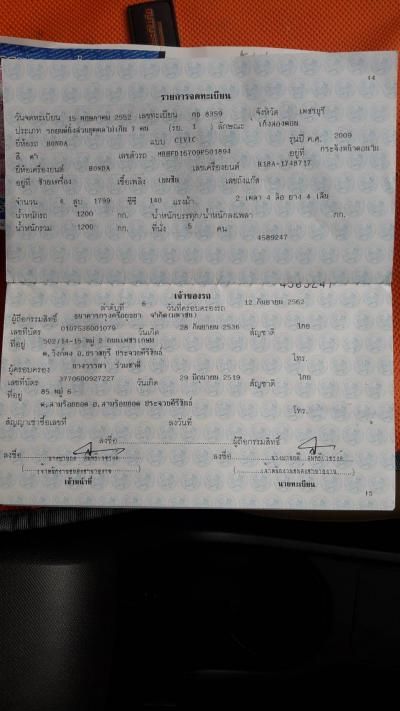 14
รายการจดทะเบียน
วันจดทะเบียน 15 พฤษภาคม 2552 เลขทะเบียน กธ 8359 จังหวัด เพชรบุรี
ประเภท รถยนต์นั่งส่วนบุคคลไม่เกิน 7 คน (รย. 1 ) ลักษณะ เก๋งสองตอน
ยี่ห้อรถ HONDA แบบ CIVIC รุ่นปี ค.ศ. 2009
สี ดำ เลขตัวรถ อยู่ที่
ยี่ห้อเครื่องยนต์ HONDA เลขเครื่องยนต์
อยู่ที่ เชื้อเพลิง เบนซิน เลขถังแก๊ส
จำนวน 4 สูบ 1799 ซีซี 140 แรงม้า 2 เพลา 4 ล้อ ยาง 4 เส้น
น้ำหนักรถ 1200 กก. น้ำหนักบรรทุก/น้ำหนักลงเพลา กก.
น้ำหนักรวม 1200 กก. ที่นั่ง 5 คน
4589247
4589247
เจ้าของรถ
ลำดับที่ 6 วันที่ครอบครองรถ 12 กันยายน 2562
ผู้ถือกรรมสิทธิ์ ธนาคารกรุงศรีอยุธยา จำกัด(มหาชน)
เลขที่บัตร 0107536001079 วันเกิด 28 กันยายน 2536 สัญชาติ ไทย
ที่อยู่ 502/14-15 หมู่ 2 ถนนเพชรเกษม
ต.วังก์พง อ.ปราณบุรี ประจวบคีรีขันธ์ โทร.
ผู้ครอบครอง ร่วมชาติ
เลขที่บัตร 3770600927227 วันเกิด 29 มิถุนายน 2519 สัญชาติ ไทย
ที่อยู่ 85 หมู่ 6
ต.สามร้อยยอด อ.สามร้อยยอด ประจวบคีรีขันธ์
โทร.
สัญญาเช่าซื้อเลขที่ ลงวันที่
ลงชื่อ ผู้ถือกรรมสิทธิ์
ลงชื่อ ลงชื่อ
เจ้าหน้าที่ นายทะเบียน
15